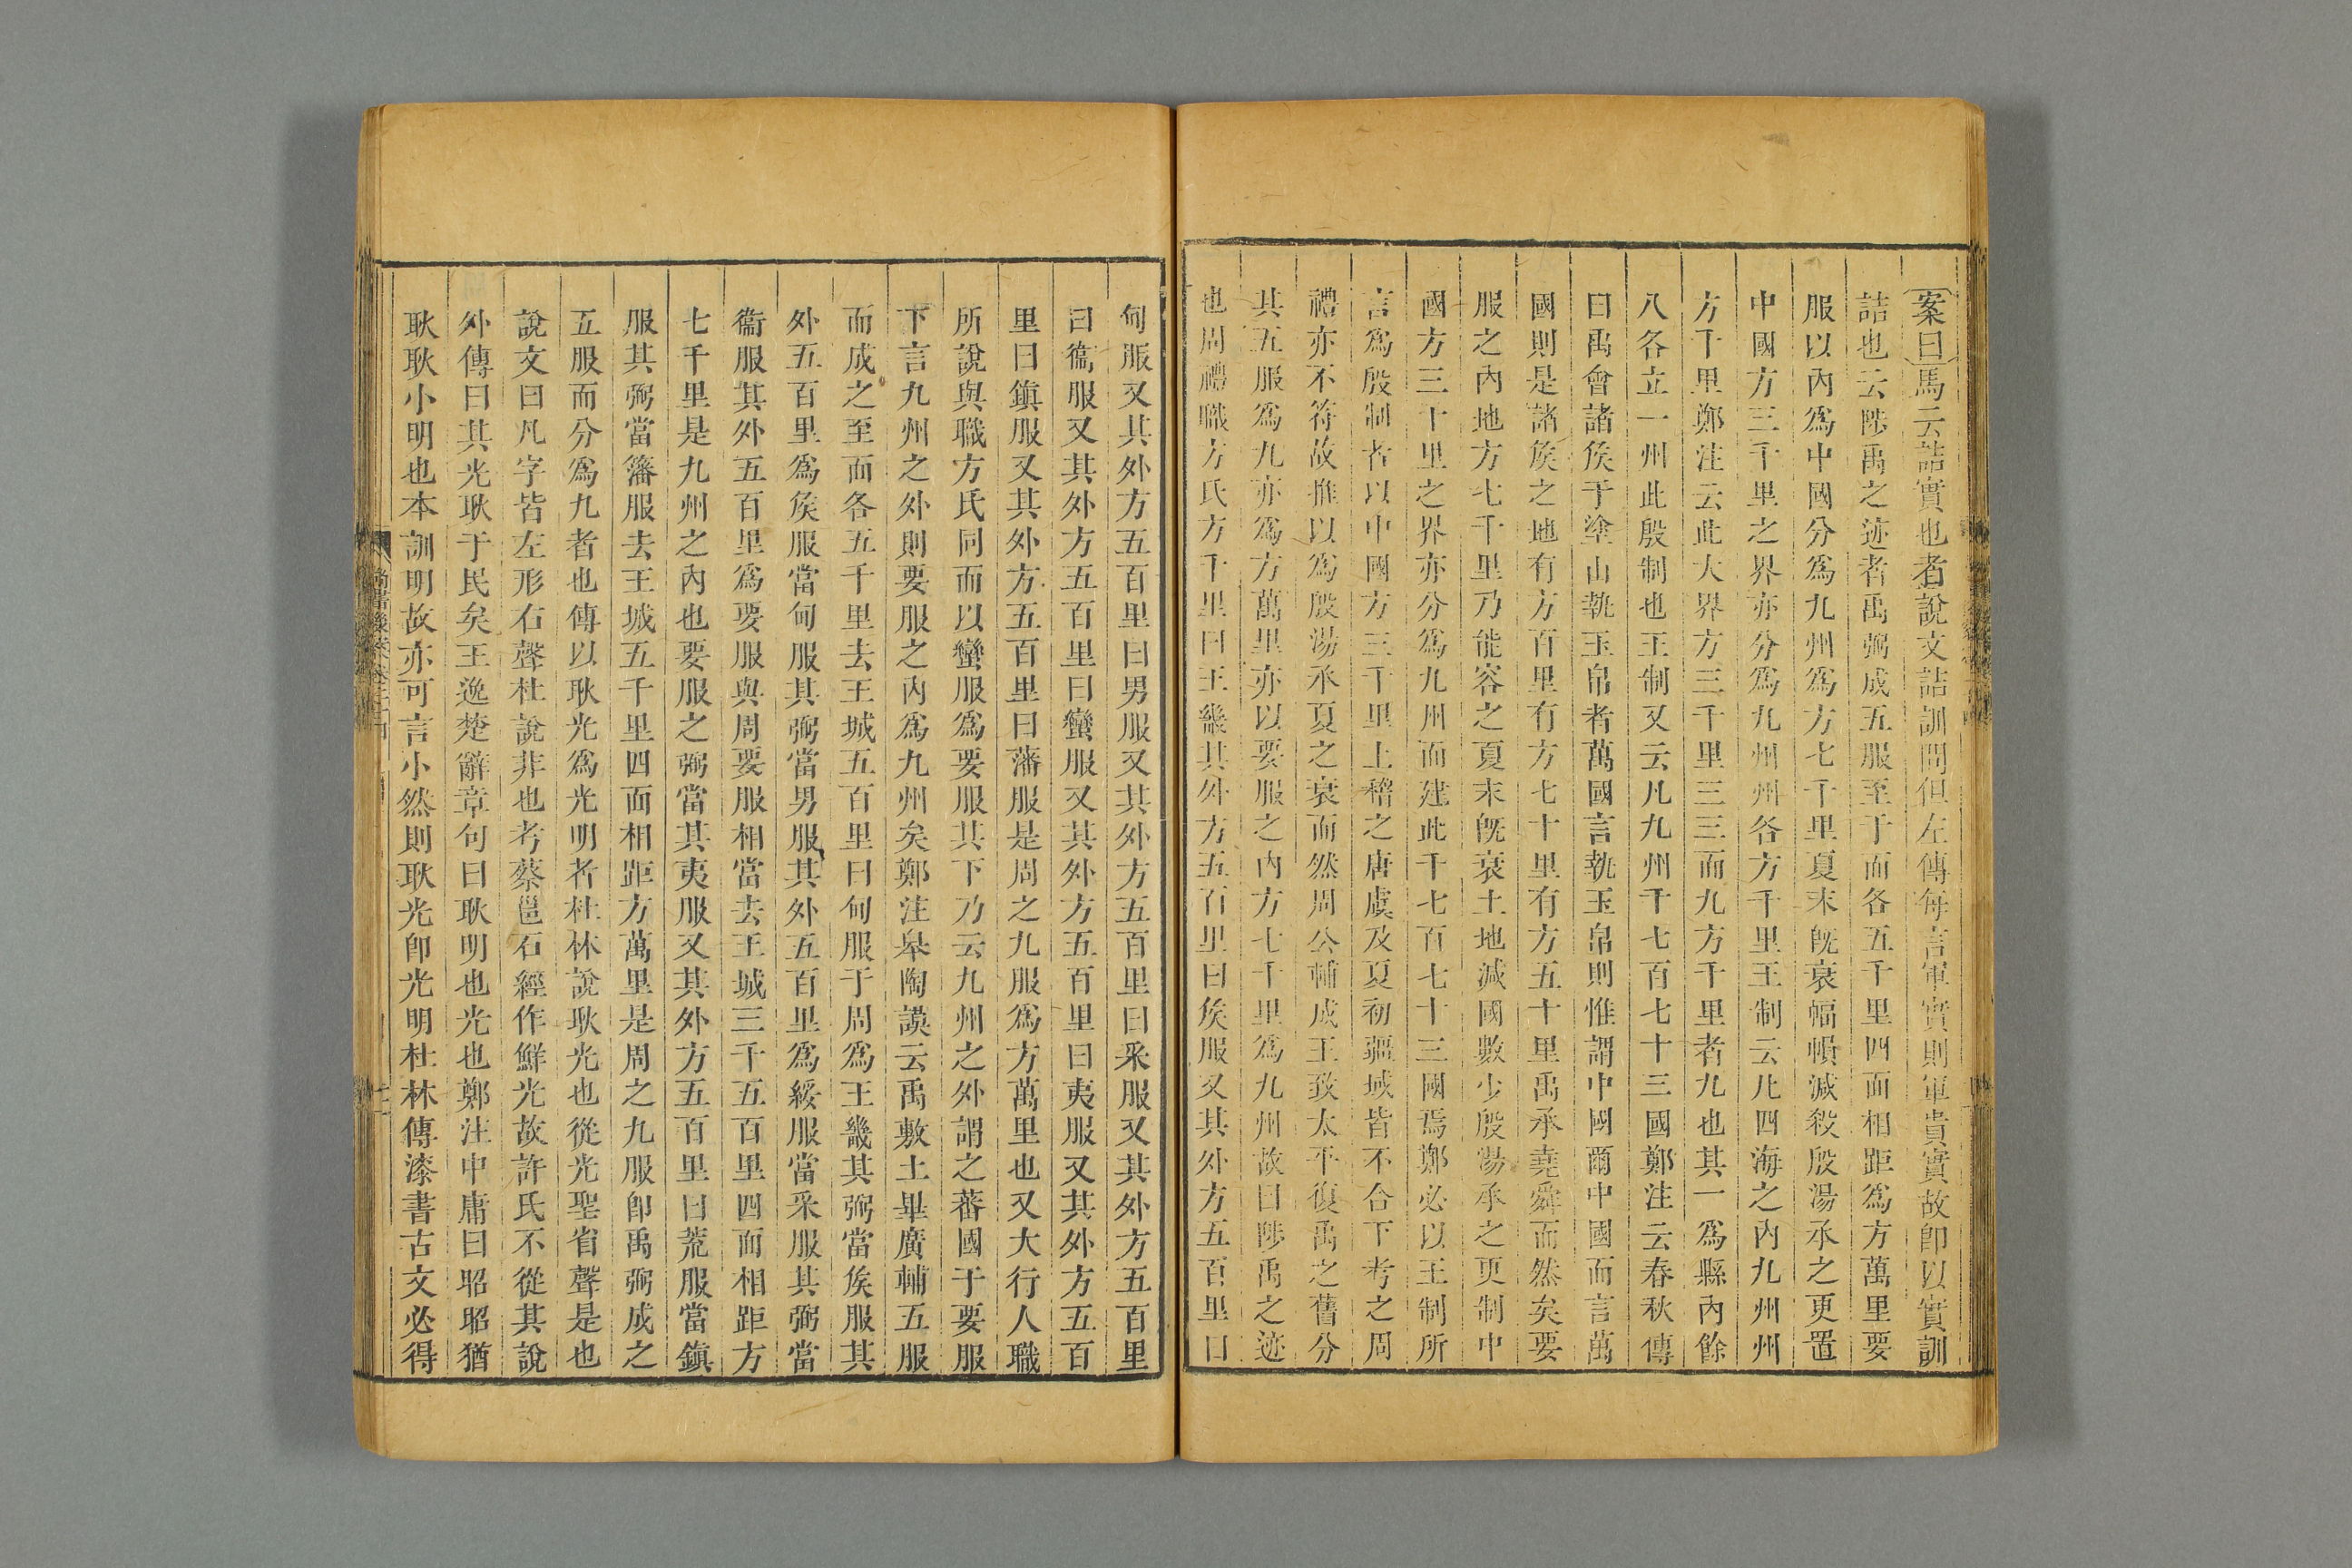 案曰馬云詰實也者說文詰訓問但左傳每言軍實則軍貴實故卽以實訓
詰也云陟禹之迹者禹弼成五服至于面各五千里四面相距爲方萬里要
服以內爲中國分爲九州爲方七千里夏末旣衰幅幀減殺殷湯承之更置
中國方三千里之界亦分爲九州州各方千里王制云凡四海之內九州州
方千里鄭注云此大界方三千里三三而九方千里者九也其一爲縣內餘
八各立一州此殷制也王制又云凡九州千七百七十三國鄭注云春秋傳
曰禹會諸侯于塗山執玉帛者萬國言執玉帛則惟謂中國爾中國而言萬
國則是諸侯之地有方百里有方七十里有方五十里禹承堯舜而然矣要
服之內地方七千里乃能容之夏末旣衰土地減國數少殷湯承之更制中
國方三千里之界亦分爲九州而建此千七百七十三國焉鄭必以王制所
言爲殷制者以中國方三千里上稽之唐虞及夏初疆域皆不合下考之周
禮亦不符故推以爲殷湯承夏之衰而然周公輔成王致太平復禹之舊分
其五服爲九亦爲方萬里亦以要服之內方七千里爲九州故曰陟禹之迹
也周禮職方氏方千里曰王畿其外方五百里曰侯服又其外方五百里曰
甸服又其外方五百里曰男服又其外方五百里曰采服又其外方五百里
曰衞服又其外方五百里曰蠻服又其外方五百里曰夷服又其外方五百
里曰鎭服又其外方五百里曰藩服是周之九服爲方萬里也又大行人職
所說與職方氏同而以蠻服爲要服其下乃云九州之外謂之蕃國于要服
下言九州之外則要服之內爲九州矣鄭注皋陶謨云禹敷土畢廣輔五服
而成之至面各五千里去王城五百里曰甸服于周爲王畿其弼當侯服其
外五百里爲侯服當甸服其弼當男服其外五百里爲綏服當采服其弼當
衞服其外五百里爲要服與周要服相當去王城三千五百里四面相距方
七千里是九州之內也要服之弼當其夷服又其外方五百里曰荒服當鎭
服其弼當籓服去王城五千里四面相距方萬里是周之九服卽禹弼成之
五服而分爲九者也傳以耿光爲光明者杜林說耿光也從光聖省聲是也
說文曰凡字皆左形右聲杜說非也考蔡邕石經作鮮光故許氏不從其說
外傳曰其光耿于民矣王逸楚辭章句曰耿明也光也鄭注中庸曰昭昭猶
耿耿小明也本訓明故亦可言小然則耿光卽光明杜林傳漆書古文必得